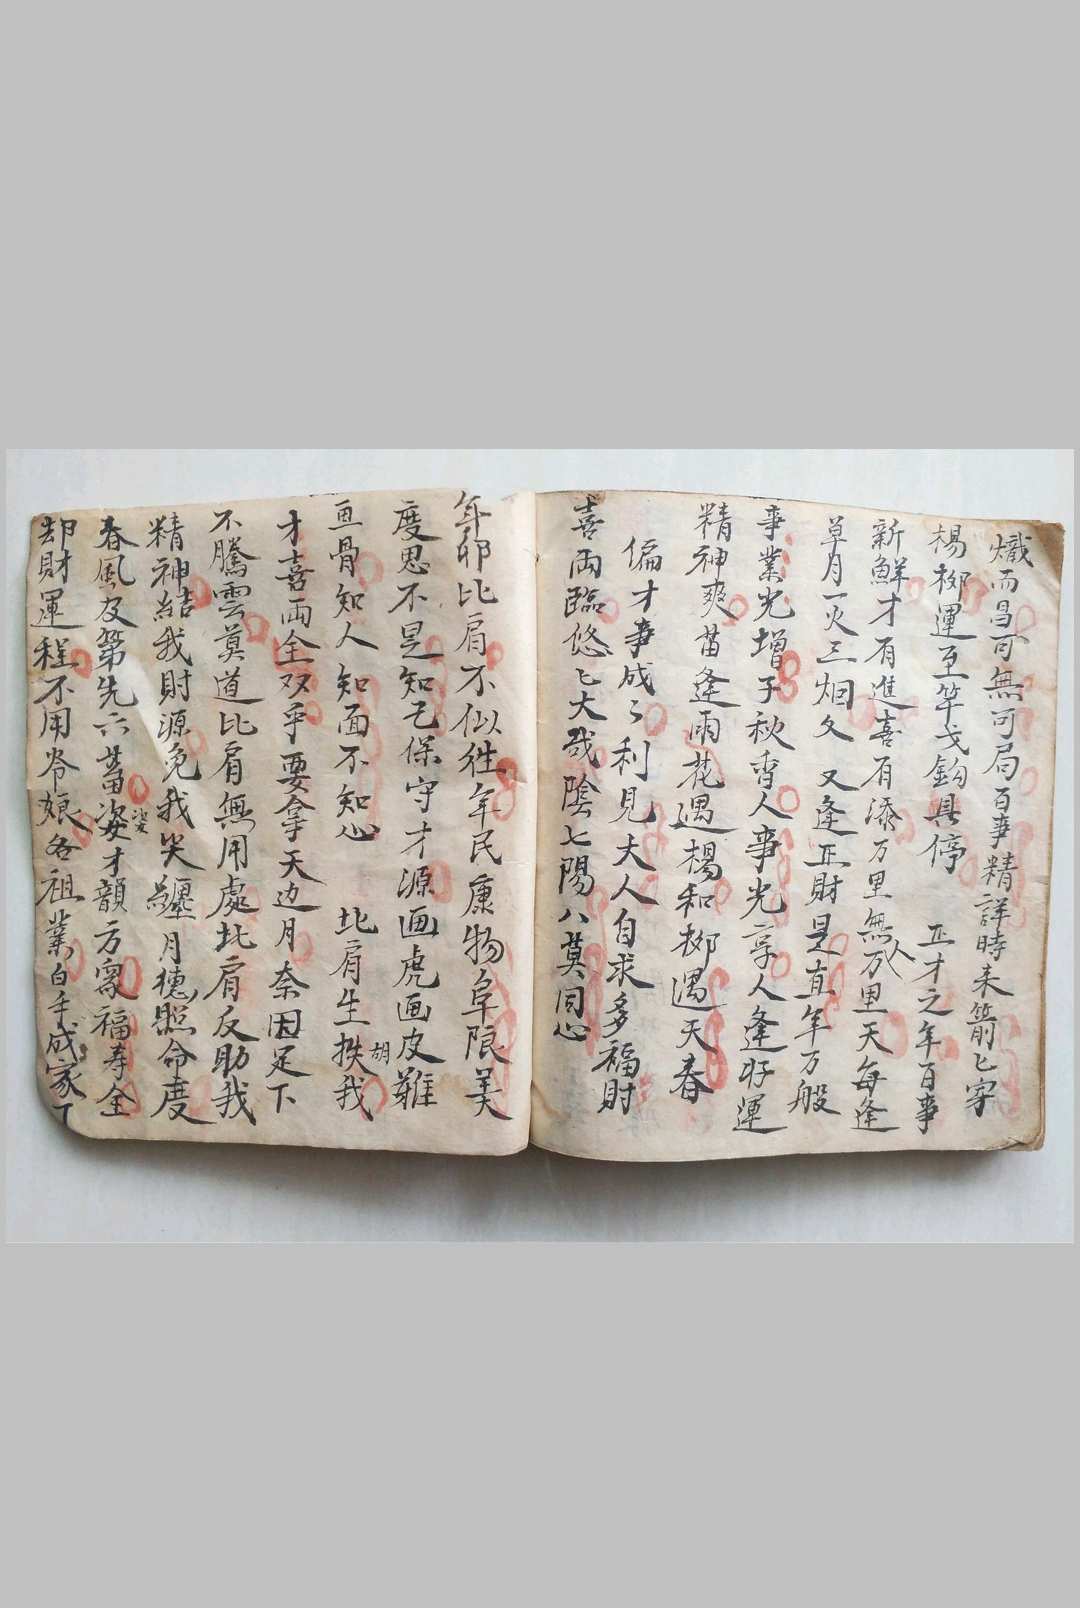 熾而昌可無可局百事精詳時来箭匕穿
楊柳運至竿戈鈎具停 正才之年百事
新鮮才有進喜有添万里無人万里天每逢
草月一火三烟夂 又逢正財是直年万般
事業光增子秋宵人事光亨人逢好運
精神爽苗逢雨花遇楊和柳遇天春
偏才事成々利見大人自求多福財
喜両臨悠匕大哉陰七陽八莫同心
年邪比肩不似往年民康物阜限美
度思不是知己保守才源画虎画皮難
画骨知人知面不知心 比肩生挾我胡
才喜両全双乎要拿天边月奈因足下
不騰雲莫道比肩無用處比肩反助我
精神結我財源免我災纏月德照命度
春風及第先六蓄姿娑才韻方寫福寿全
却財運程不用爷娘各祖業白手成家下